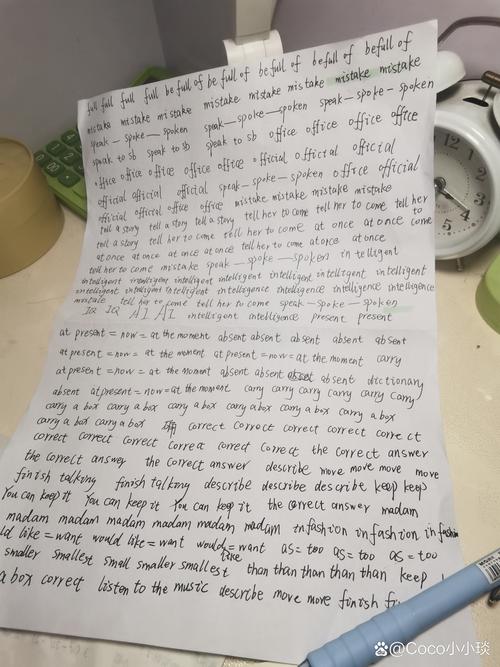 full full full full be full of be full of be full of be full of be full of
mistake mistake mistake mistake mistake mistake mistake mistake
speak — spoke — spoken speak — spoke — spoken speak — spoke — spoken
speak to sb speak to sb speak to sb office office office office
office office office office office official official official
official official official speak — spoke — spoken office official
official official office office mistake mistake mistake mistake
tell a story tell a story tell a story tell her to come tell her to come tell her to
tell a story tell her to come tell her to come at once at once come
at once at once at once at once tell her to come at once at once
tell her to come mistake speak — spoke — spoken intelligent
intelligent intelligent intelligent intelligent intelligent intelligent intelligent
intelligent intelligent intelligent intelligence intelligence intelligence intelligence
mistake tell her to come tell her to come speak — spoke — spoken
IQ IQ AI AI intelligent intelligence present present
at present = now = at the moment absent absent absent absent absent
at present = now = at the moment at present = now = at the moment carry
at present = now = at the moment absent absent absent dictionary
absent at present = now = at the moment carry carry carry carry carry carry
carry a box carry a box carry a box carry a box carry a box
carry a box carry a box correct correct correct correct correct
correct correct correct correct correct correct the correct answer
the correct answer the correct answer describe move move move move
finish talking finish talking describe describe describe keep keep
You can keep it You can keep it You can keep it the correct answer madam
madam madam madam madam madam madam in fashion in fashion in fashion
ld like = want would like = want would like = want as = too as = too as = too
smaller smallest small smaller smallest than than than than than keep
a box correct listen to the music describe move move finish
@Coco小小琰